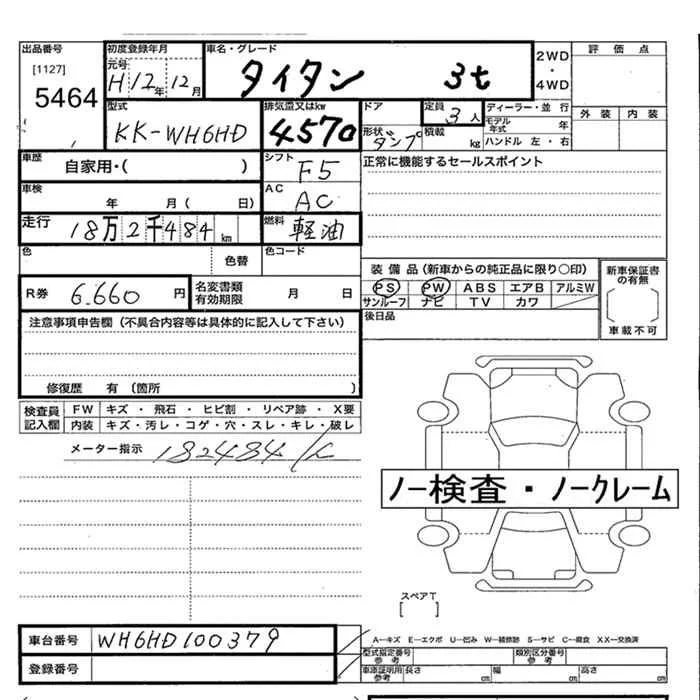 出品番号 初度登録年月 車名・グレード 2WD・4WD 評価点
[1127] 元号 H12年12月 タイタン 3t
5464 外装 内装
型式 KK-WH6HD 排気量又はkw 4570 ドア 定員 3人 ディーラー・並行
モデル年式 年
形状 ダンプ 積載 kg ハンドル 左・右
車歴 自家用・( ) シフト F5 正常に機能するセールスポイント
車検 年 月( 日) AC AC
走行 18万2千484km 燃料 軽油
色 色替 色コード
装備品(新車からの純正品に限り○印) 新車保証書の有無
R券 6.660円 名変書類有効期限 月 日 PS PW ABS エアB アルミW
サンルーフ ナビ TV カワ
注意事項申告欄(不具合内容等は具体的に記入して下さい) 後日品 車載不可
修復歴 有(箇所 )
検査員記入欄 FW キズ・飛石・ヒビ割・リペア跡・X要
内装 キズ・汚レ・コゲ・穴・スレ・キレ・破レ
メーター指示 182484
ノー検査・ノークレーム
スペアT
[ ]
車台番号 WH6HD100379 A―キズ E―エクボ U―凹み W―補修跡 S―サビ C―腐食 XX―交換済
型式指定番号 参考 類別区分番号 参考
登録番号 車庫証明用 参考 長さ cm 幅 cm 高さ cm